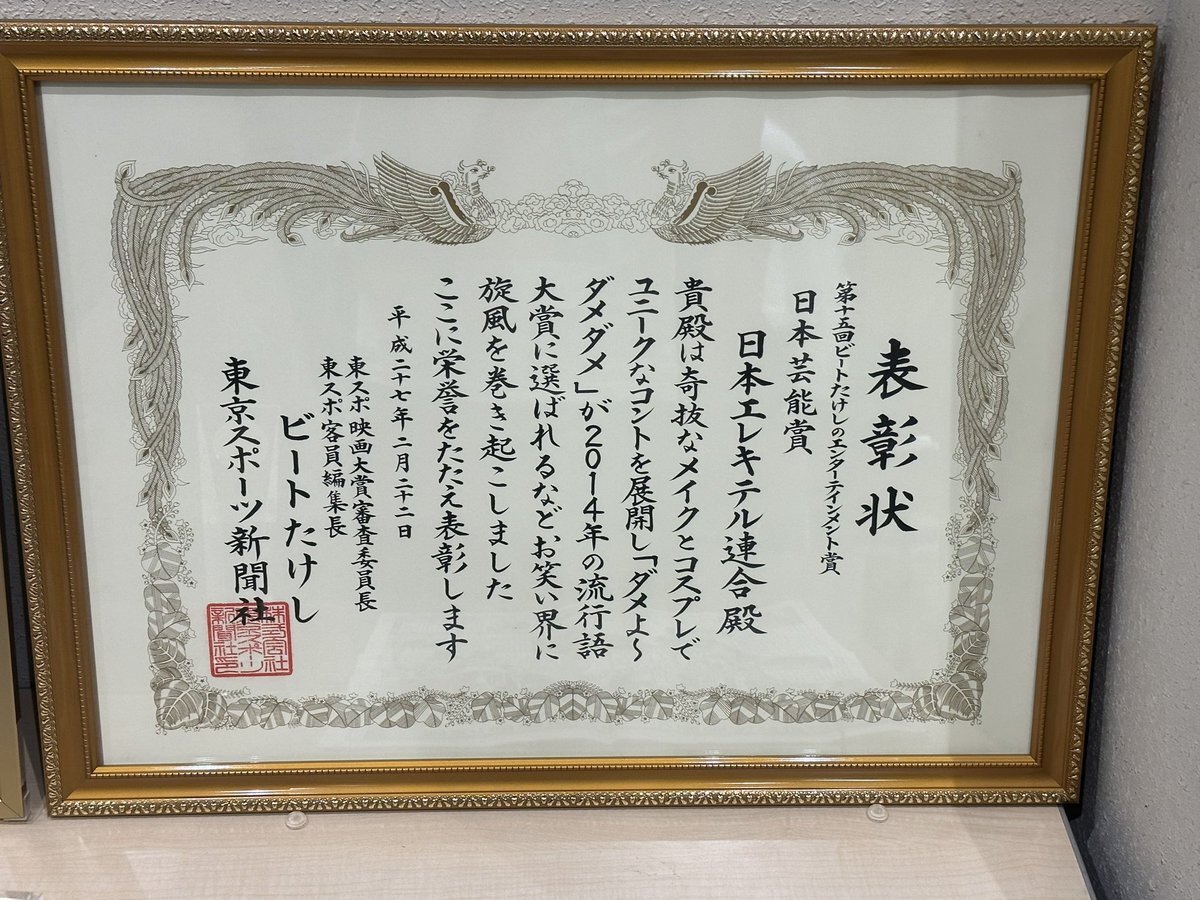 表彰状
第十五回ビートたけしのエンターテインメント賞
日本芸能賞
日本エレキテル連合殿
貴殿は奇抜なメイクとコスプレで
ユニークなコントを展開し「ダメよ～
ダメダメ」が2014年の流行語
大賞に選ばれるなど、お笑い界に
旋風を巻き起こしました
ここに栄誉をたたえ表彰します
平成二十七年二月二十二日
東スポ映画大賞審査委員長
東スポ客員編集長
ビートたけし
東京スポーツ新聞社